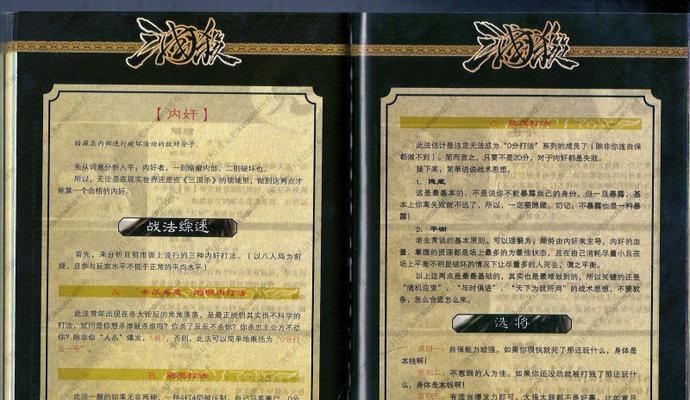 三国杀
【内奸】
暗藏在内部进行破坏活动的敌对分子。
先从词意分析入手：内奸者，一则暗藏内部，二则破坏也。
所以，无论是在现实世界还是在《三国杀》的领域里，做到这两点才
能算一个合格的内奸。
战法综述
首先，来分析目前市面上流行的三种内奸打法。（以八人局为前
提，且参与玩家水平不低于正常的平均水平）
此法常年出现在各大论坛的角角落落，是最正统但其实很不科学的
打法，试问是你想杀谁就杀谁吗？你杀了反反不杀你？你杀忠主公方不动
你？除非你“人品”爆发，否则，此法可以简单地概括为“0分打
法一号”
三国杀
此法估计是注定无法成为“0分打法”系列的成员了（除非你连自保
都做不到）。简而言之，只要不是20分，对于内奸都是失败。
接下来，简单说说战术思想。
1. 隐藏
这是最基本的，不是说你不能暴露自己的身份，但一旦暴露，基
本上你离失败就不远了，所以，一定要隐藏，切记：不暴露也是一种暴
露！
2. 平衡
老生常谈的基本原则。可以理解为：局势由内奸来主导，内奸的血
量、掌握的资源都是场上最多的为最佳状态，且在自己消耗尽量小且在
场上平衡不明显破坏的情况下让尽量多的人死去，谓之平衡。
以上这两点是最最基础的，其实也是最难做到的，所以关键的还是
“随机应变”、“与时俱进”、“天下为我所用”的战术思想，不要教
条，怎么合适怎么来。
选将
原则一：自保能力较强。如果你很快就死了那还玩什么，身体是
本钱啊！
原则二：不惹眼的人为佳。如果你还没动就被打残了那还玩什
么，身体是本钱啊！